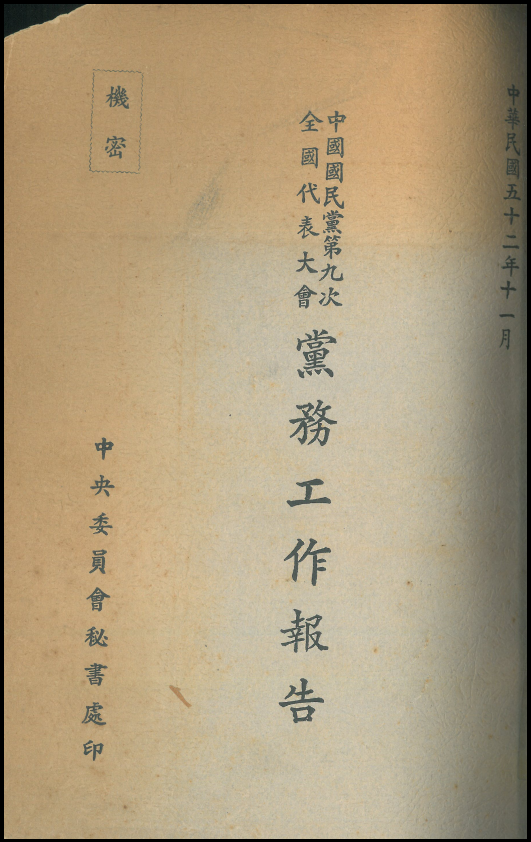 中華民國五十二年十一月
中國國民黨第九次
全國代表大會
黨務工作報告
中央委員會秘書處印
機密